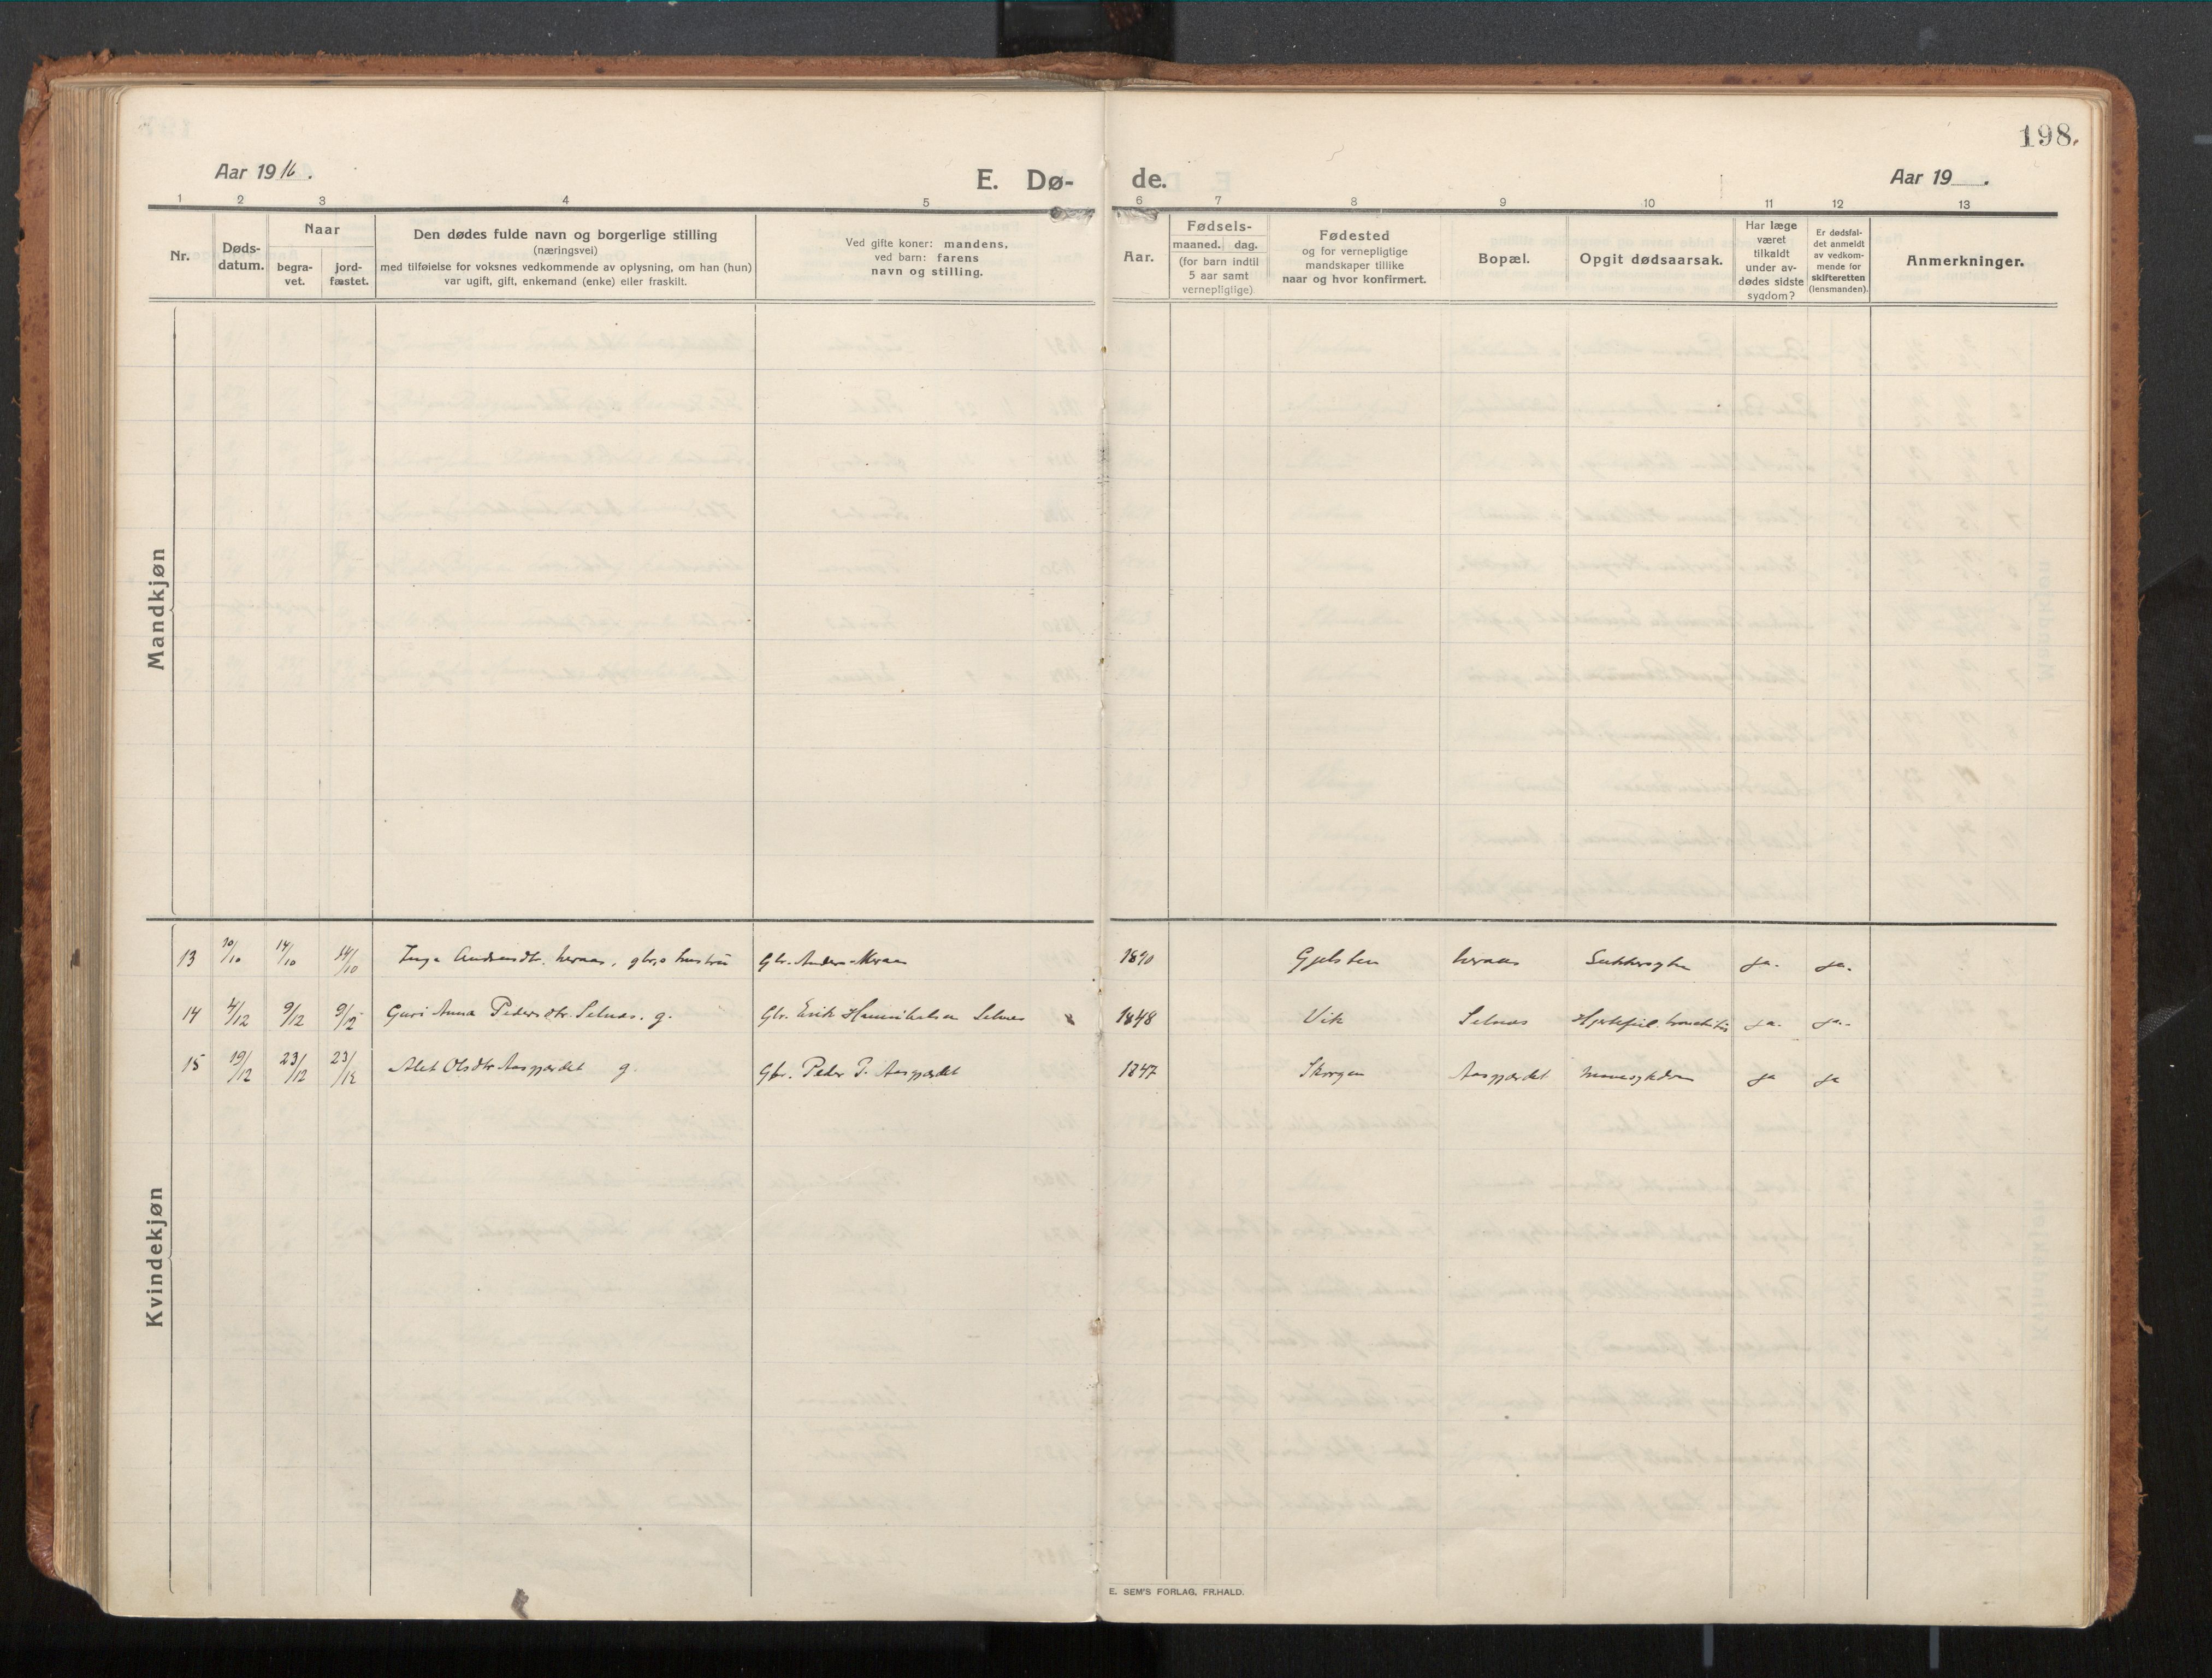 198.
Aar 1916.
E. Dø-
de.
Aar 19 .
1 2 3 4 5 6 7 8 9 10 11 12 13
Nr.
Døds-
datum.
Naar
begra-
vet.
jord-
fæstet.
Den dødes fulde navn og borgerlige stilling
(næringsvei)
med tilføielse for voksnes vedkommende av oplysning, om han (hun)
var ugift, gift, enkemand (enke) eller fraskilt.
Ved gifte koner: mandens,
ved barn: farens
navn og stilling.
Aar.
Fødsels-
maaned. dag.
(for barn indtil
5 aar samt
vernepligtige)
Fødested
og for vernepligtige
mandskaper tillike
naar og hvor konfirmert.
Bopæl.
Opgit dødsaarsak.
Har læge
været
tilkaldt
under av-
dødes sidste
sygdom?
Er dødsfal-
det anmeldt
av vedkom-
mende for
skifteretten
(lensmanden).
Anmerkninger.
Mandkjøn
Kvindekjøn
13 10/10 14/10 14/10 Inga Andersdtr. gbr.s hustru Gbr. Anders 1890 Gjelsten Sukkersyke ja. ja.
14 4/12 9/12 9/12 Guri Anna Pedersdtr. Selnæs. g. Gbr. Erik Selnæs 1848 Vik Selnæs Hjertefeil. bronchitis ja. ja.
15 19/12 23/12 23/12 Alet Olsdtr Aasgjærdet g. Gbr. Peder P. Aasgjærdet 1847 Skorgen Aasgjærdet ja ja
E. SEM'S FORLAG, FR.HALD.